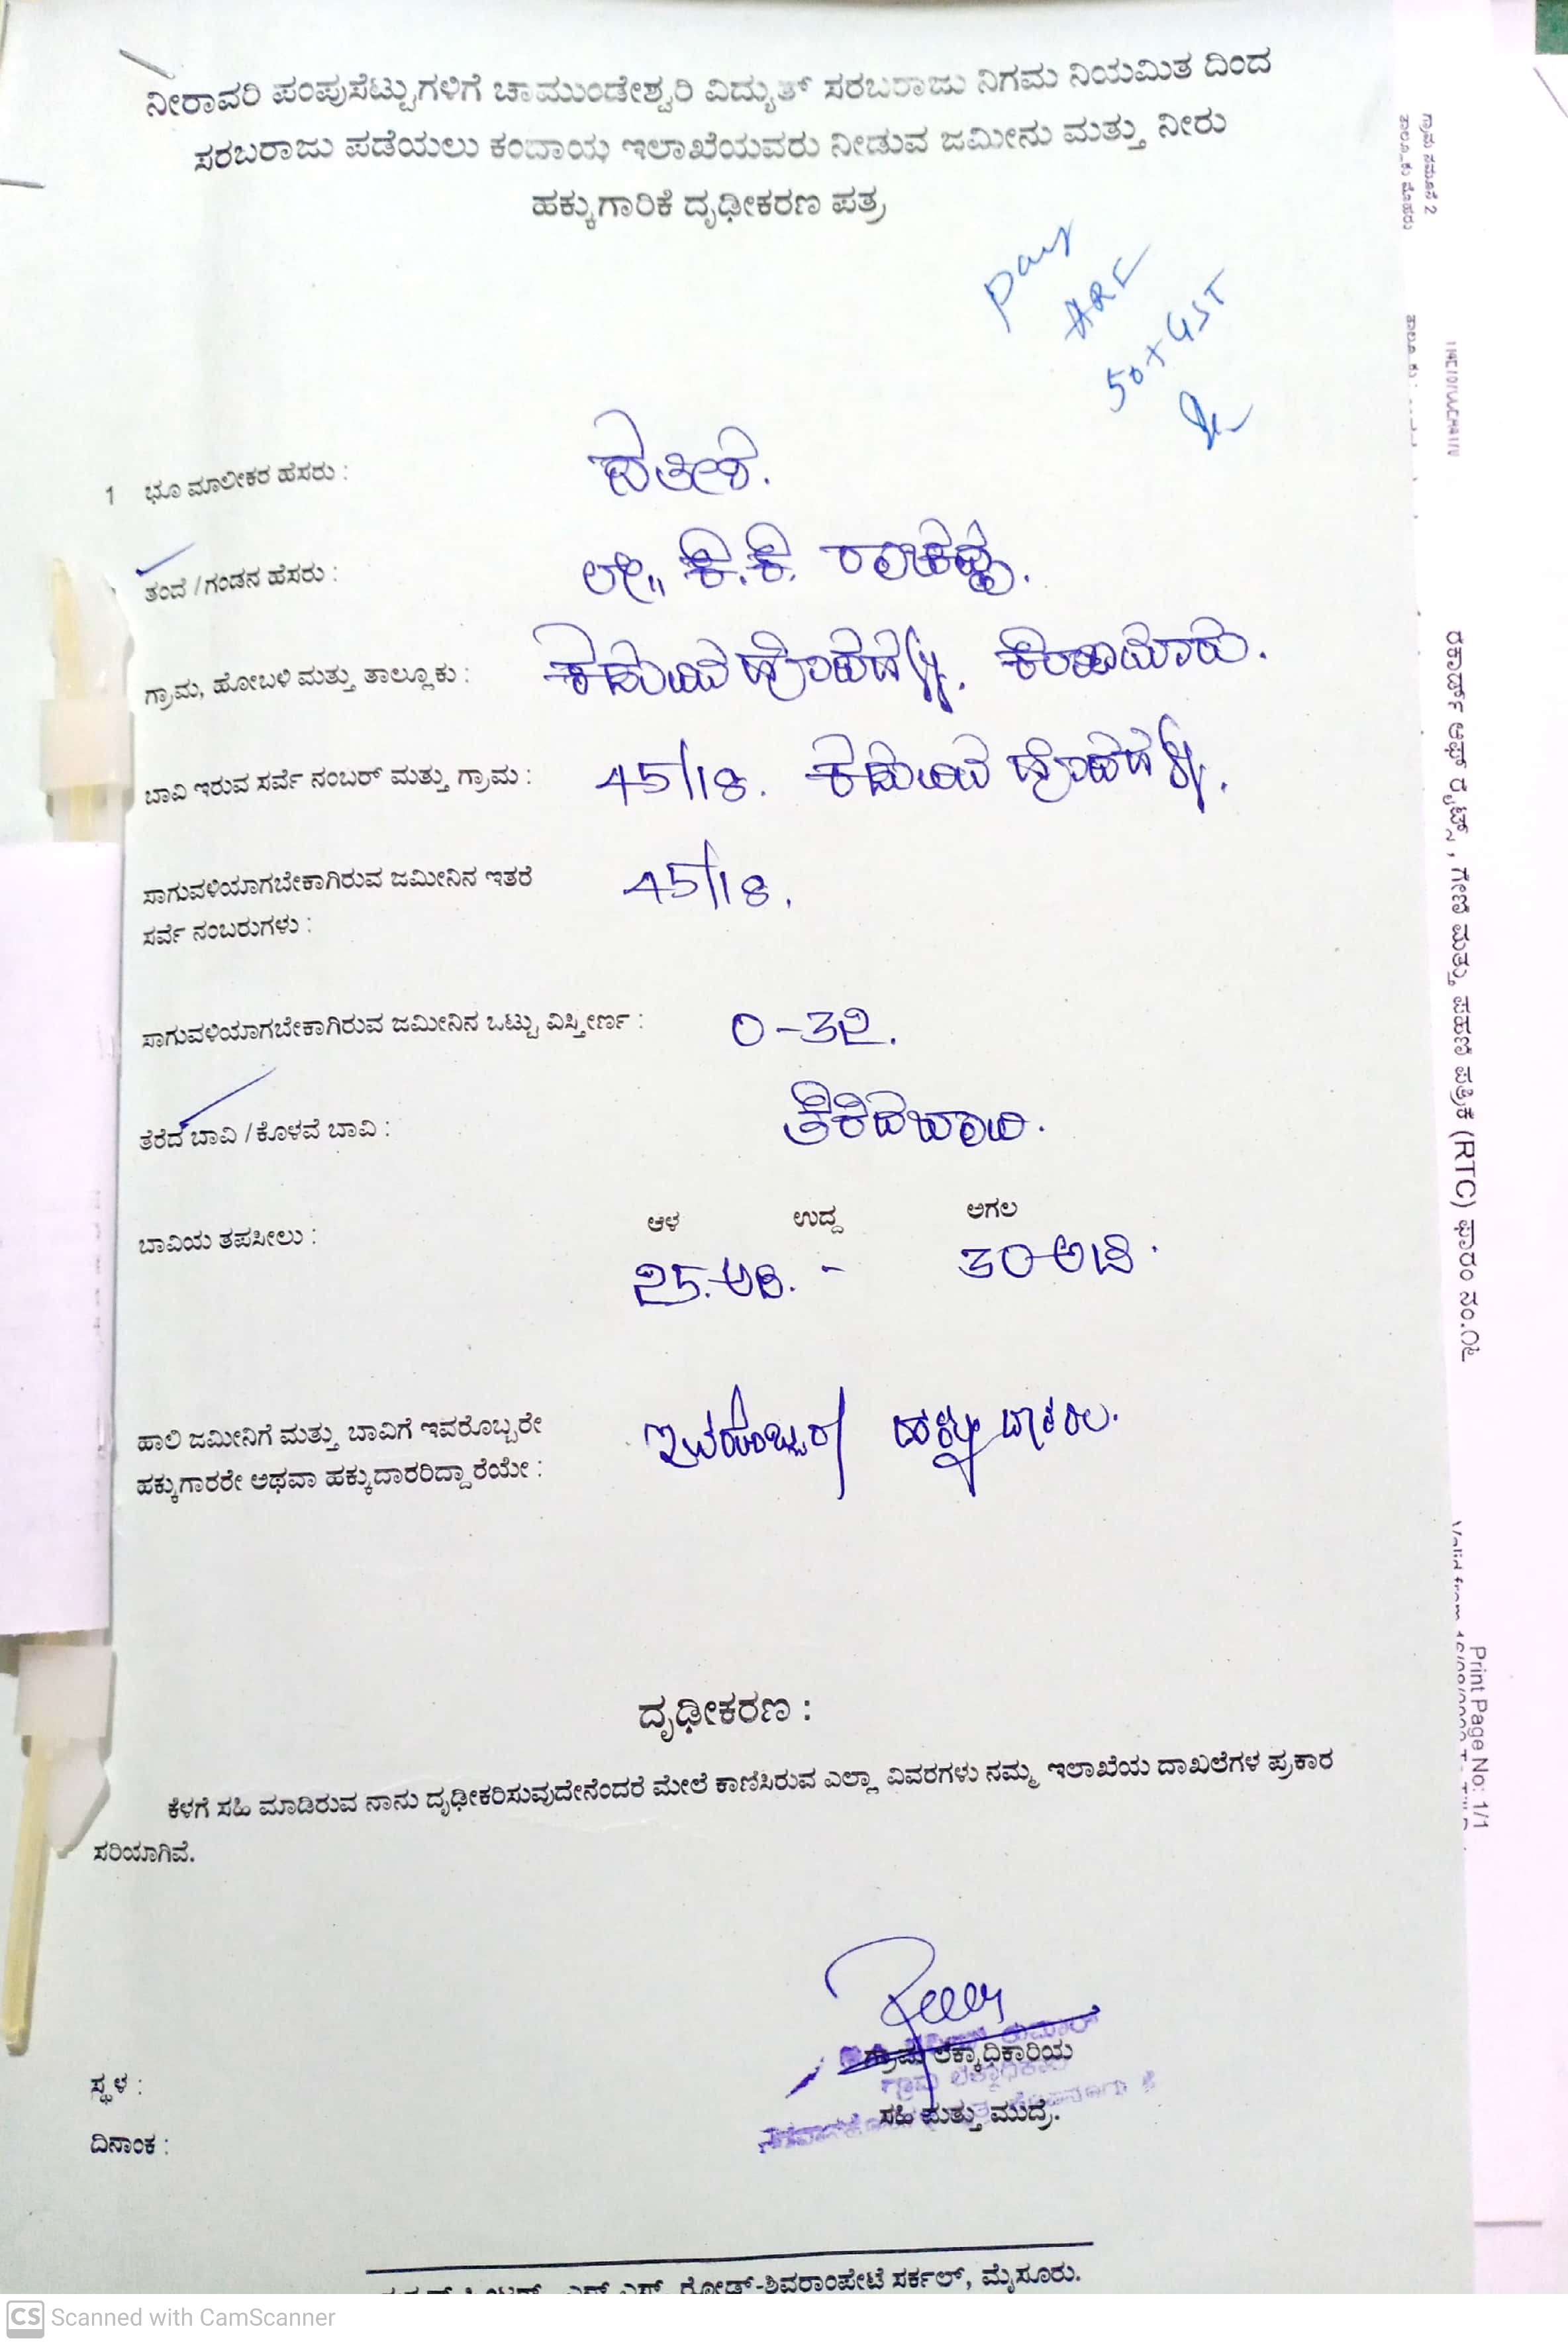 ನೀರಾವರಿ ಪಂಪುಸೆಟ್ಟುಗಳಿಗೆ ಚಾಮುಂಡೇಶ್ವರಿ ವಿದ್ಯುತ್ ಸರಬರಾಜು ನಿಗಮ ನಿಯಮಿತ ದಿಂದ
ಸರಬರಾಜು ಪಡೆಯಲು ಕಂದಾಯ ಇಲಾಖೆಯವರು ನೀಡುವ ಜಮೀನು ಮತ್ತು ನೀರು
ಹಕ್ಕುಗಾರಿಕೆ ದೃಢೀಕರಣ ಪತ್ರ
Pay
ARF
50 + GST
1 ಭೂ ಮಾಲೀಕರ ಹೆಸರು : ಸತೀಶ.
ತಂದೆ / ಗಂಡನ ಹೆಸರು : ಲೇ,, ಕೆ.ಕೆ.
ಗ್ರಾಮ, ಹೋಬಳಿ ಮತ್ತು ತಾಲ್ಲೂಕು :
ಬಾವಿ ಇರುವ ಸರ್ವೆ ನಂಬರ್ ಮತ್ತು ಗ್ರಾಮ : 45/18.
ಸಾಗುವಳಿಯಾಗಬೇಕಾಗಿರುವ ಜಮೀನಿನ ಇತರೆ 45/18.
ಸರ್ವೆ ನಂಬರುಗಳು :
ಸಾಗುವಳಿಯಾಗಬೇಕಾಗಿರುವ ಜಮೀನಿನ ಒಟ್ಟು ವಿಸ್ತೀರ್ಣ : 0-32.
ತೆರೆದ ಬಾವಿ / ಕೊಳವೆ ಬಾವಿ : ತೆರೆದಬಾವಿ.
ಆಳ ಉದ್ದ ಅಗಲ
ಬಾವಿಯ ತಪಸೀಲು : 25.ಅಡಿ. - 30 ಅಡಿ.
ಹಾಲಿ ಜಮೀನಿಗೆ ಮತ್ತು ಬಾವಿಗೆ ಇವರೊಬ್ಬರೇ ಇವರೊಬ್ಬರೇ ಹಕ್ಕುದಾರರು.
ಹಕ್ಕುಗಾರರೇ ಅಥವಾ ಹಕ್ಕುದಾರರಿದ್ದಾರೆಯೇ :
ದೃಢೀಕರಣ :
ಕೆಳಗೆ ಸಹಿ ಮಾಡಿರುವ ನಾನು ದೃಢೀಕರಿಸುವುದೇನೆಂದರೆ ಮೇಲೆ ಕಾಣಿಸಿರುವ ಎಲ್ಲಾ ವಿವರಗಳು ನಮ್ಮ ಇಲಾಖೆಯ ದಾಖಲೆಗಳ ಪ್ರಕಾರ
ಸರಿಯಾಗಿವೆ.
ಗ್ರಾಮ ಲೆಕ್ಕಾಧಿಕಾರಿಯ
ಗ್ರಾಮ ಲೆಕ್ಕಾಧಿಕಾರಿ
ಸಹಿ ಮತ್ತು ಮುದ್ರೆ.
ಸ್ಥಳ :
ದಿನಾಂಕ :
ರೋಡ್-ಶಿವರಾಂಪೇಟೆ ಸರ್ಕಲ್, ಮೈಸೂರು.
ಗ್ರಾಮ ನಮೂನೆ 2
ತಾಲ್ಲೂಕು ಮೊಹರು
ರೆಕಾರ್ಡ್ ಆಫ್ ರೈಟ್ಸ್, ಗೇಣಿ ಮತ್ತು ಪಹಣಿ ಪತ್ರಿಕೆ (RTC) ಫಾರಂ ನಂ.೧೬
Print Page No: 1/1
CS Scanned with CamScanner